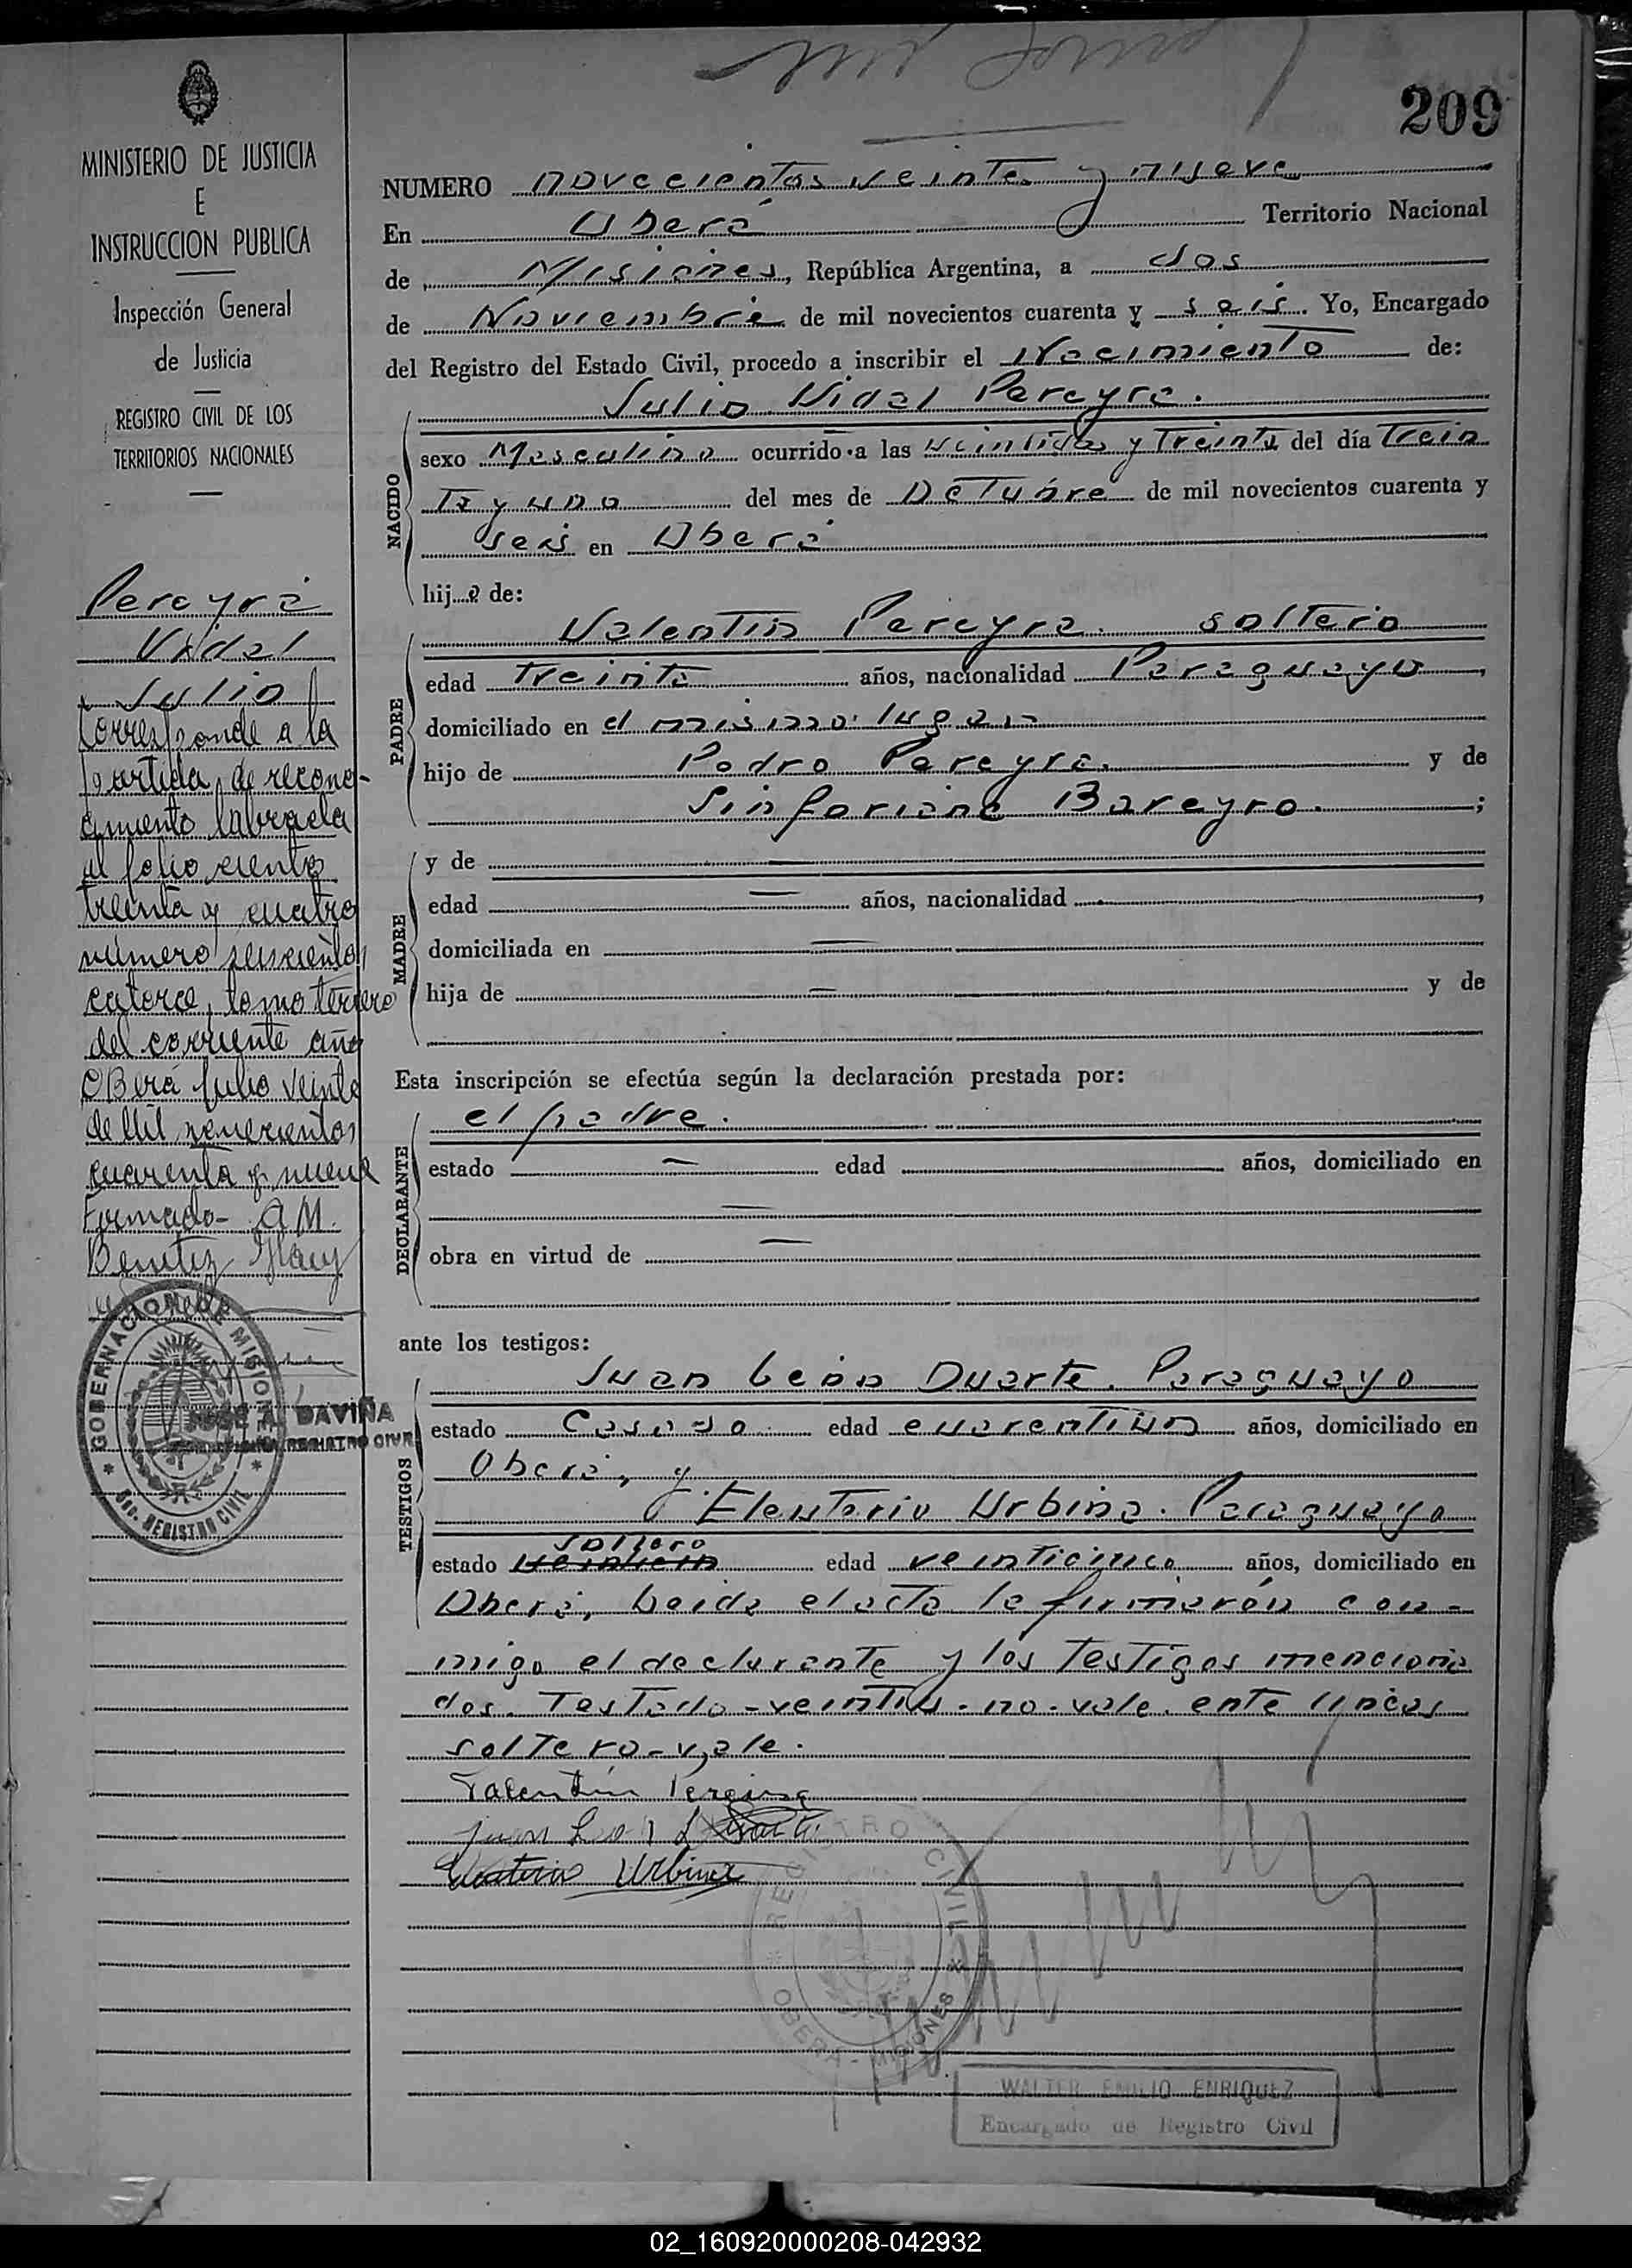 209
MINISTERIO DE JUSTICIA
E
INSTRUCCION PUBLICA
Inspección General
de Justicia
REGISTRO CIVIL DE LOS
TERRITORIOS NACIONALES
Pereyra
Vidal
Julio
Corresponde a la
partida de recono-
cimiento labrada
al folio ciento
treinta y cuatro
número seiscientos
catorce, tomo tercero
del corriente año
Oberá Julio veinte
de Mil novecientos
cuarenta y nueve
Firmado- A M.
Benitez
GOBERNACION DE MISIONES
SEC. REGISTRO CIVIL
JOSE A. DAVIÑA
REGISTRO CIVIL
NUMERO novecientos veinte y nueve
En Oberá Territorio Nacional
de Misiones, República Argentina, a dos
de Noviembre de mil novecientos cuarenta y seis. Yo, Encargado
del Registro del Estado Civil, procedo a inscribir el Nacimiento de:
NACIDO
Julio Vidal Pereyra.
sexo Masculino ocurrido a las veintidos y treinta del día trein
ta y uno del mes de Octubre de mil novecientos cuarenta y
seis en Oberá
hijo de:
PADRE
Valentin Pereyra. soltero
edad treinta años, nacionalidad Paraguayo,
domiciliado en el mismo lugar
hijo de Pedro Pereyra. y de
Sinforiana Bareyro. ;
MADRE
y de —
edad — años, nacionalidad ,
domiciliada en —
hija de — y de
Esta inscripción se efectúa según la declaración prestada por:
DECLARANTE
el padre.
estado — edad años, domiciliado en
—
obra en virtud de —
ante los testigos:
TESTIGOS
Juan León Duarte. Paraguayo
estado Casado. edad cuarentiun años, domiciliado en
Oberá, y
Eleuterio Urbina. Paraguayo
soltero
estado edad veinticinco años, domiciliado en
Oberá, Leida el acta la firmarón con-
migo el declarante y los testigos menciona
dos. Testado-veintiun-no-vale. ente lineas
soltero-vale.
Valentin Pereira
Juan Leon Duarte
Eleuterio Urbina
REGISTRO CIVIL
OBERA - MISIONES
WALTER EMILIO ENRIQUEZ
Encargado de Registro Civil
02_160920000208-042932